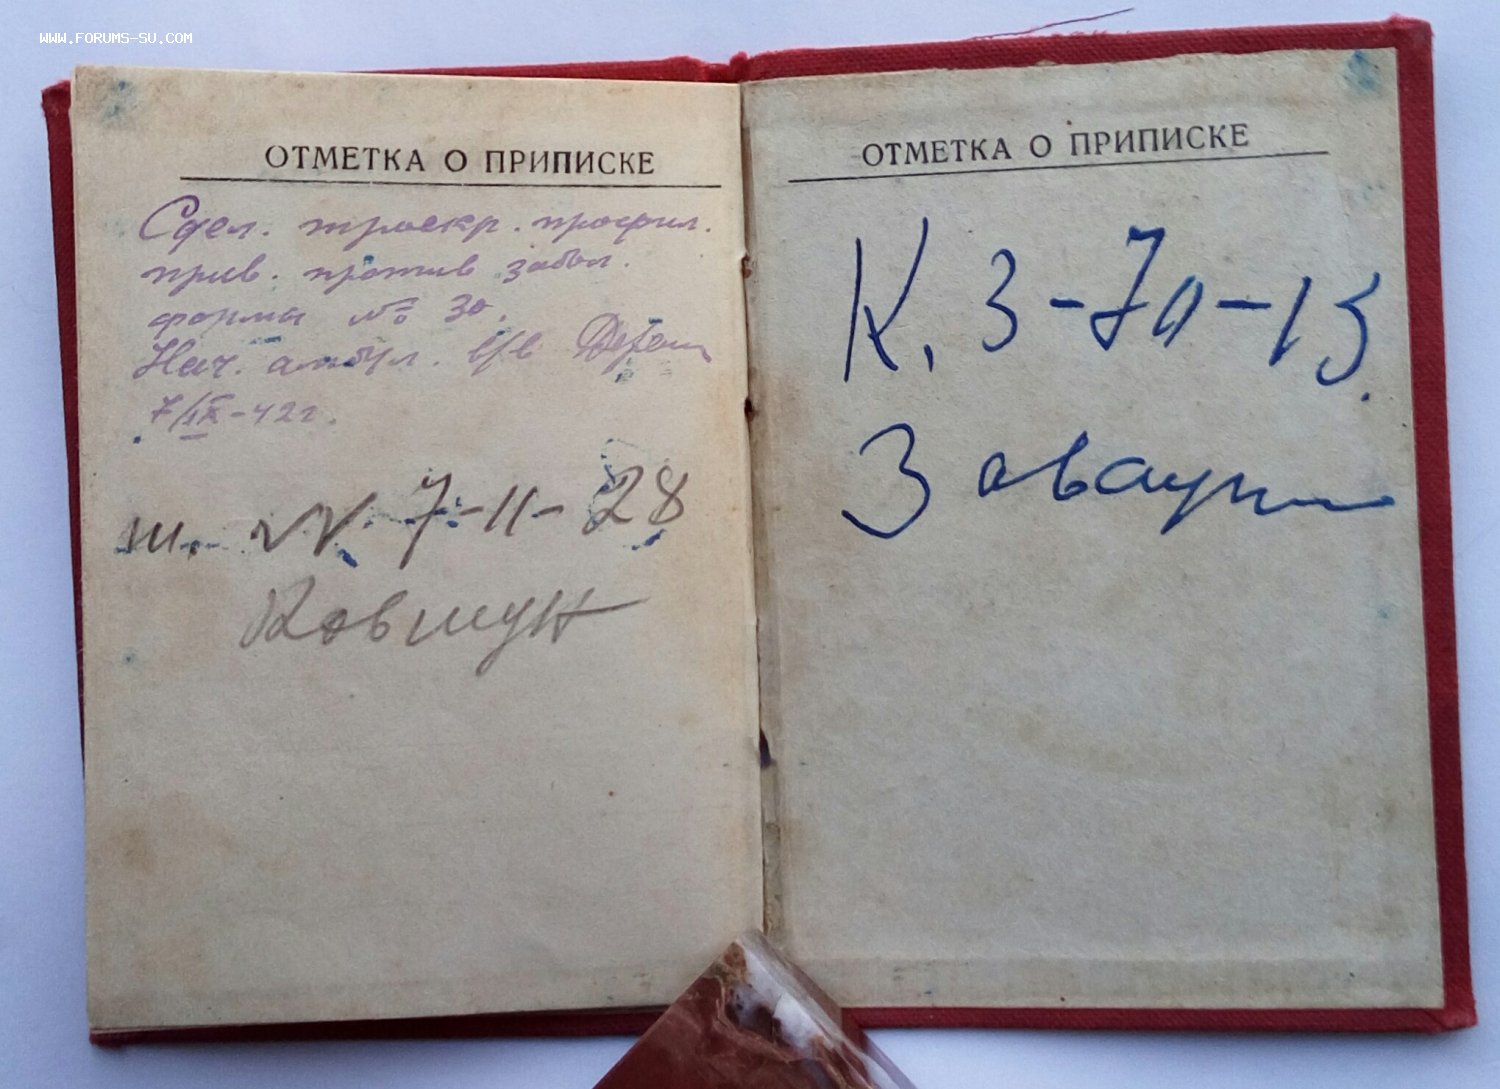 WWW.FORUMS-SU.COM
ОТМЕТКА О ПРИПИСКЕ
Сдел. троекр. профил.
прив. против забол.
форма № 30.
Нач. амбул. в/в
7/IX-42г.
т. 7-11-28
Ковшун
ОТМЕТКА О ПРИПИСКЕ
К. 3-70-13.